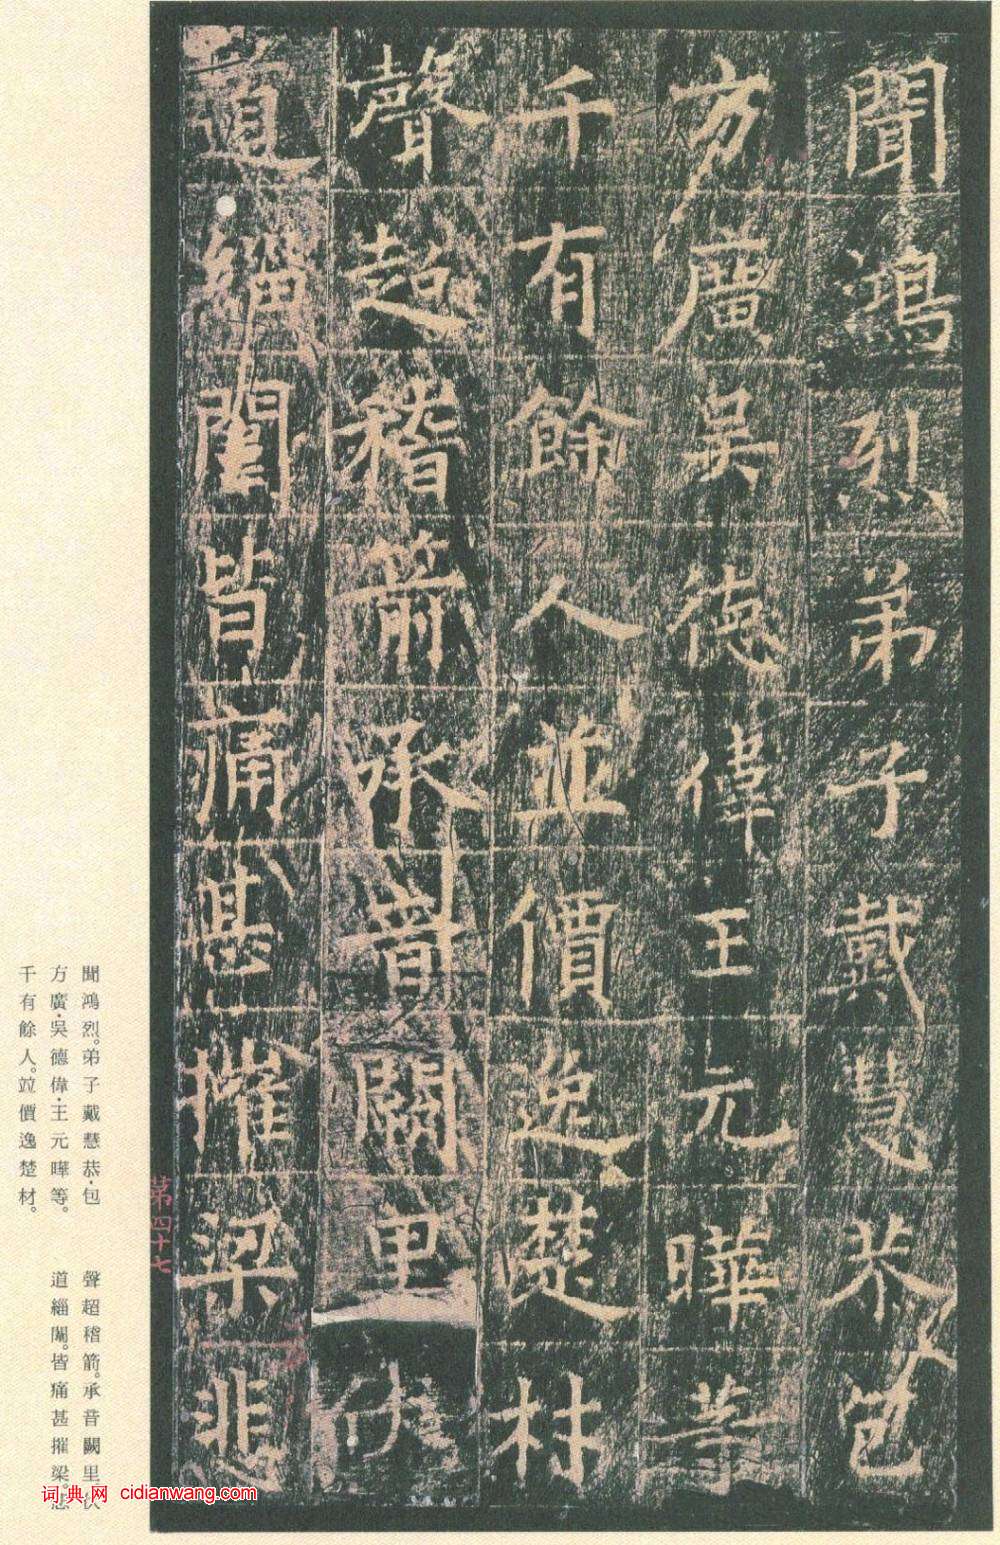 聞鴻烈弟子戴慧恭包
方廣吳德偉王元暐等
千有餘人並價逸楚材
聲超稽箭承音闕里伏
道緇闈皆痛甚摧梁悲
第四十七
聞鴻烈。弟子戴慧恭·包
方廣·吳德偉·王元暐等。
千有餘人。竝價逸楚材。
聲超稽箭。承音闕里伏
道緇闈。皆痛甚摧梁。悲
词典网 cidianwang.com